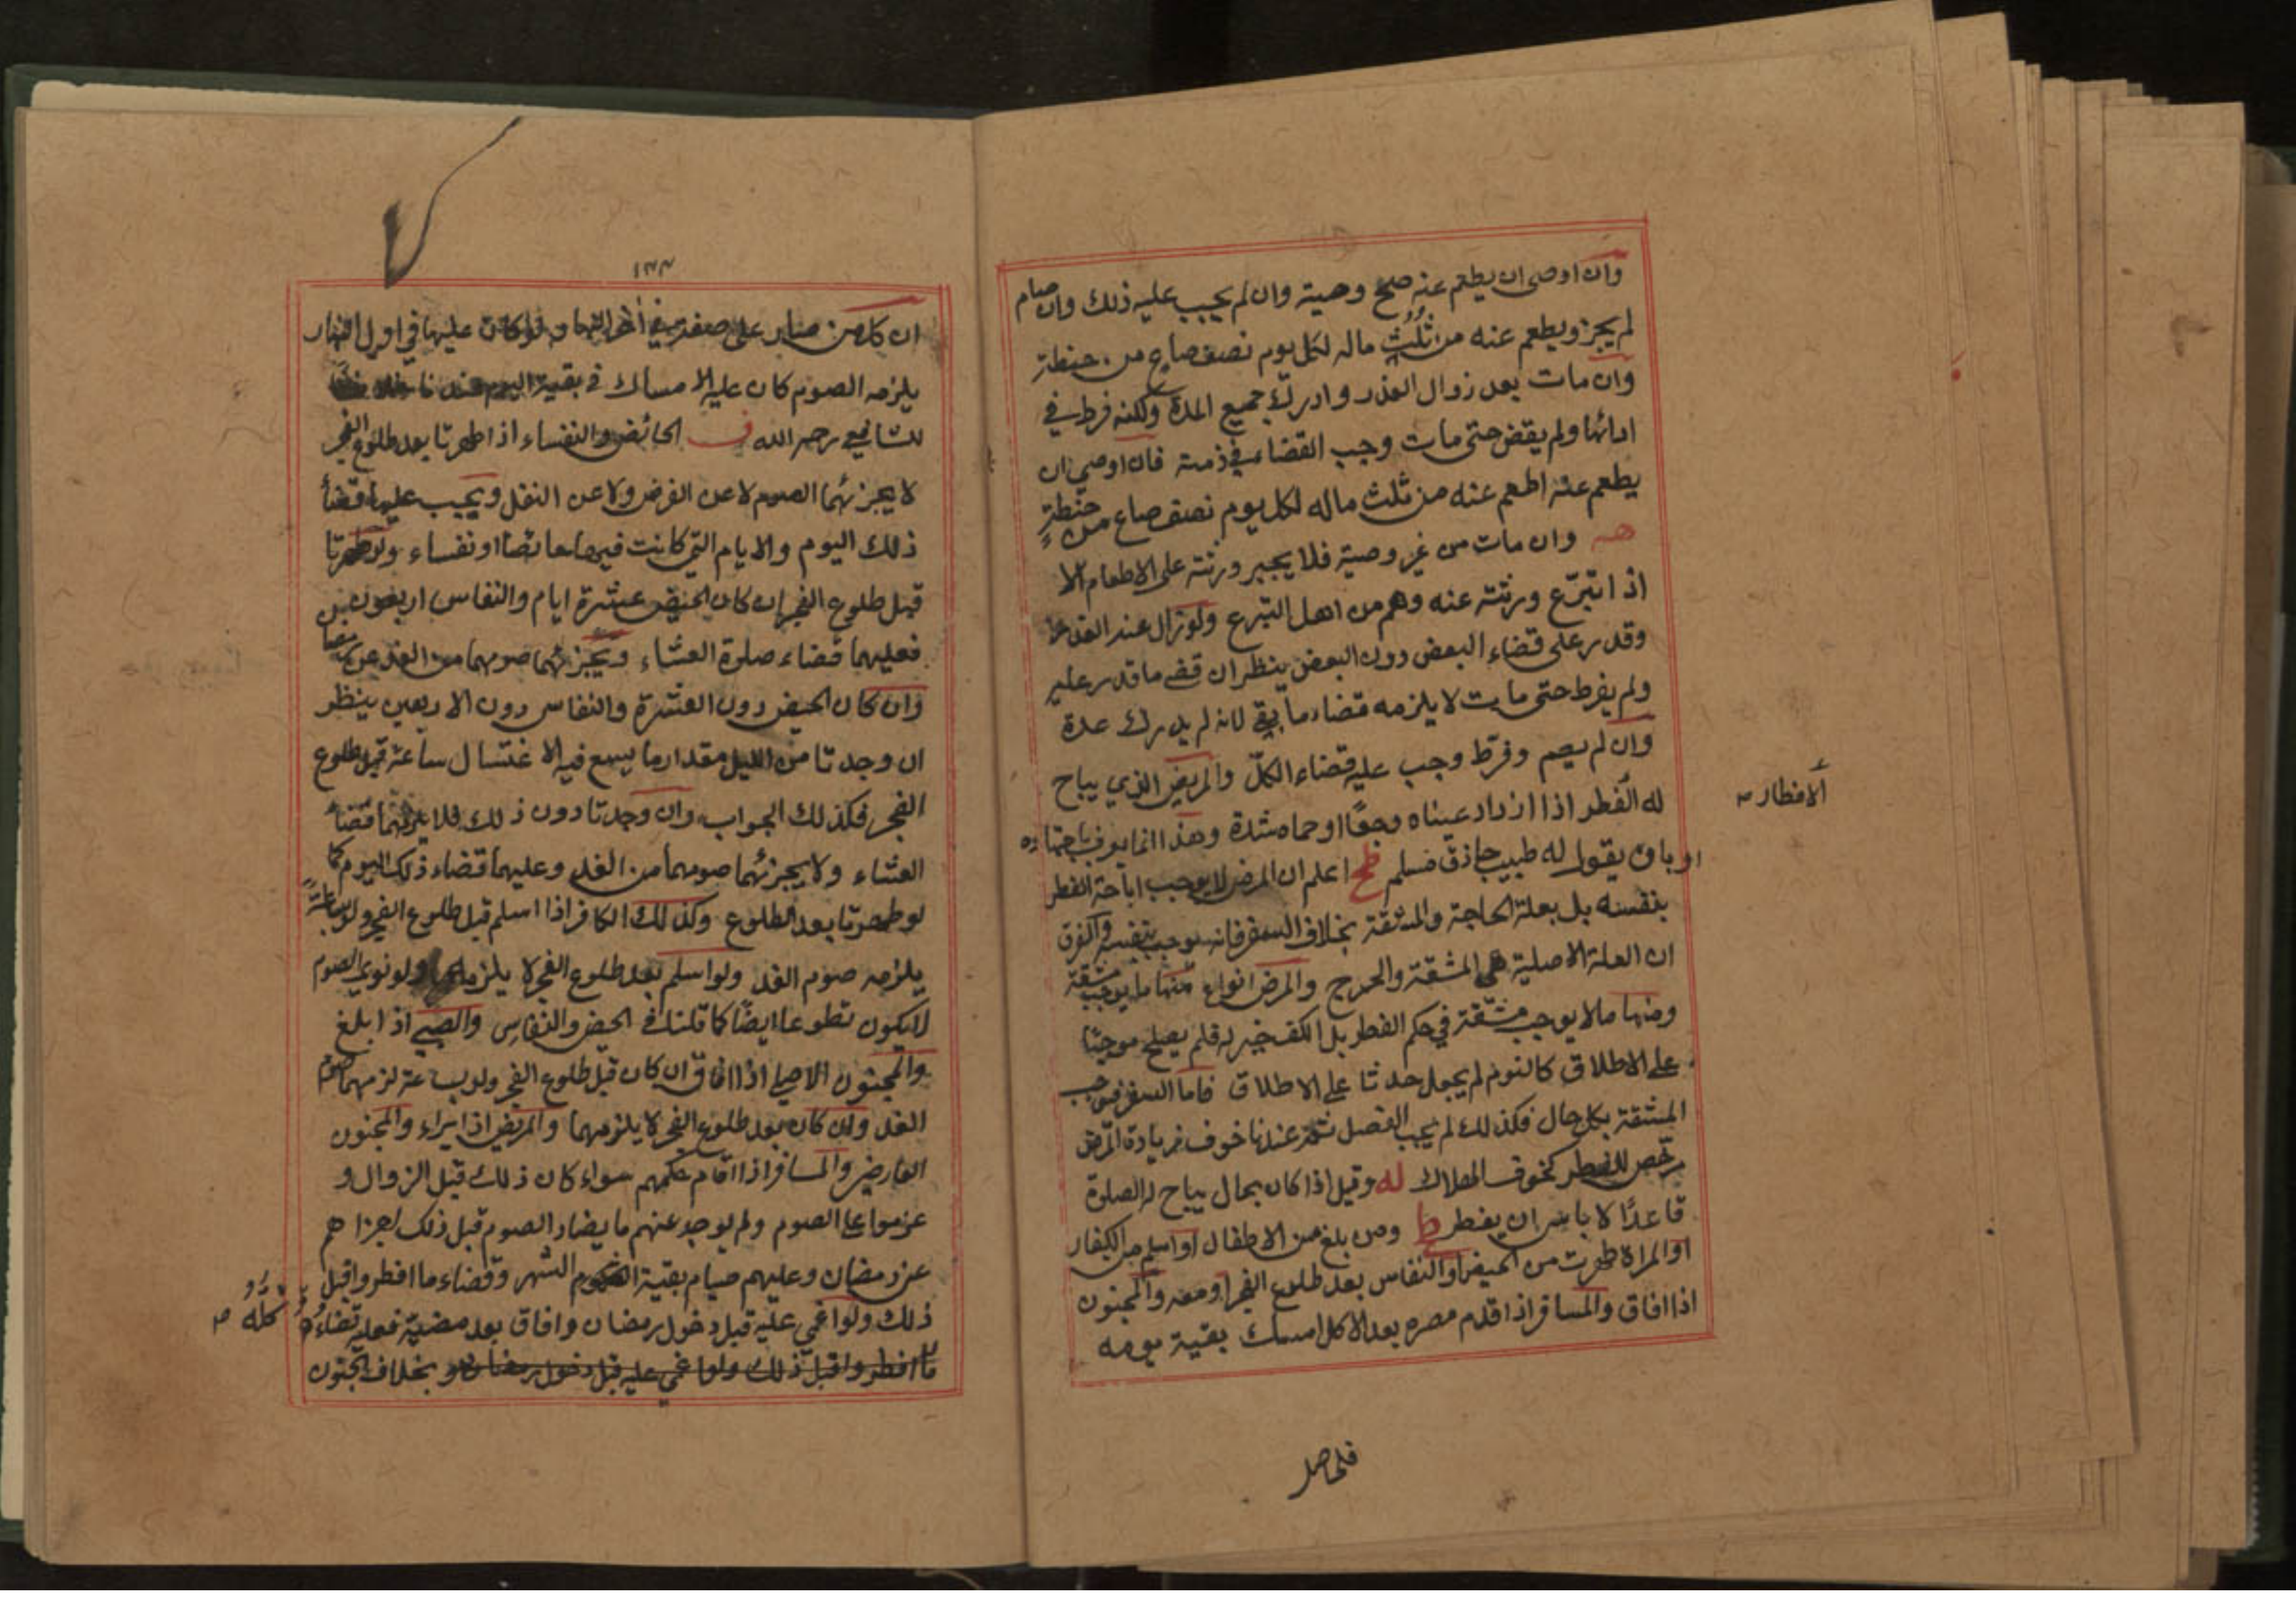 وان اوصى ان يطعم عنه صح وصية وان لم يجب عليه ذلك وان صام
لم يجز ويطعم عنه من ثُلُث ماله لكل يوم نصف صاع من حنطة
وان مات بعد زوال العذر وادرك جميع المدة ولكنه فرط في
ادائها ولم يقض حتى مات وجب القضاء في ذمته فان اوصى ان
يطعم عنه اطعم عنه من ثلث ماله لكل يوم نصف صاع من حنطةٍ
هـ وان مات من غير وصية فلا يجبر ورثته على الاطعام الا
اذا تبرّع ورثته عنه وهم من اهل التبرع ولو زال عند العذر
وقدر على قضاء البعض دون البعض ينظر ان قضى ما قدر عليه
ولم يفرط حتى مات لا يلزمه قضاء ما بقي لانه لم يدرك عدة
وان لم يصم وفرّط وجب عليه قضاء الكلّ والمريض الذي يباح
له الفطر اذا ازداد عيناه وجعًا او حماه شدة وهذا انما يعرف باجتهاده
او بان يقول له طبيب حاذق مسلم اعلم ان المرض لا يوجب اباحة الفطر
بنفسه بل بعلة الحاجة والمشقة بخلاف السفر فانه يوجب بنفسه والفرق
ان العلة الاصلية هي المشقة والحرج والمرض انواع منها ما يوجب مشقة
ومنها ما لا يوجب مشقة في حكم الفطر بل الكف خير له فلم يصلح موجبًا
على الاطلاق كالنوم لم يجعل حدثا على الاطلاق فاما السفر فيوجب
المشقة بكل حال فكذلك لم يجب الفصل ثمة عندنا خوف زيادة المرض
مرخص للفطر كخوف الهلاك له وقيل اذا كان بحال يباح له الصلوة
قاعدًا لا باس ان يفطر ط ومن بلغ من الاطفال او اسلم من الكفار
او المراة طهرت من الحيض او النفاس بعد طلوع الفجر او معه والمجنون
اذا افاق والمسافر اذا قدم مصره بعد الاكل امسك بقية يومه
الافطار صـ
١٣٣
ان كل من صار على صفة في اخر النهار لو كان عليها في اول النهار
يلزمه الصوم كان عليه الامساك في بقية اليوم عندنا خلافا
للشافعي رحمه الله ف الحائض والنفساء اذا طهرتا بعد طلوع الفجر
لا يجزئهما الصوم لا عن الفرض ولا عن النفل ويجب عليهما قضأ
ذلك اليوم والايام التي كانت فيها حائضا او نفساء ولو طهرتا
قبل طلوع الفجر ان كان الحيض عشرة ايام والنفاس اربعون
فعليهما قضاء صلوة العشاء ويجزئهما صومهما من الغد عن رمضا
وان كان الحيض دون العشرة والنفاس دون الاربعين ينظر
ان وجدتا من الليل مقدار ما يسع فيه الاغتسال ساعة قبل طلوع
الفجر فكذلك الجواب وان وجدتا دون ذلك فلا يلزمهما قضأ
العشاء ولا يجزئهما صومهما من الغد وعليهما قضاء ذلك اليوم كما
لو طهرتا بعد الطلوع وكذلك الكافر اذا اسلم قبل طلوع الفجر ولو بساعة
يلزمه صوم الغد ولو اسلم بعد طلوع الفجر لا يلزمه ولو نوى الصوم
لا يكون تطوعا ايضًا كما قلنا في الحيض والنفاس والصبي اذا بلغ
والمجنون الاصلي اذا افاق ان كان قبل طلوع الفجر ولو بساعة لزمهما صوم
الغد وان كان بعد طلوع الفجر لا يلزمهما والمريض اذا براء والمجنون
العارض والمسافر اذا اقام حكمهم سواء كان ذلك قبل الزوال و
عزموا على الصوم ولم يوجد عنهم ما يضاد الصوم قبل ذلك اجزاهم
عن رمضان وعليهم صيام بقية الشهر وقضاء ما افطروا قبل
ذلك ولو اغمي عليه قبل دخول رمضان وافاق بعد مضيه فعليه قضاؤه
كله صـ
ما افطروا قبل ذلك ولو اغمي عليه قبل دخول رمضان بخلاف المجنون